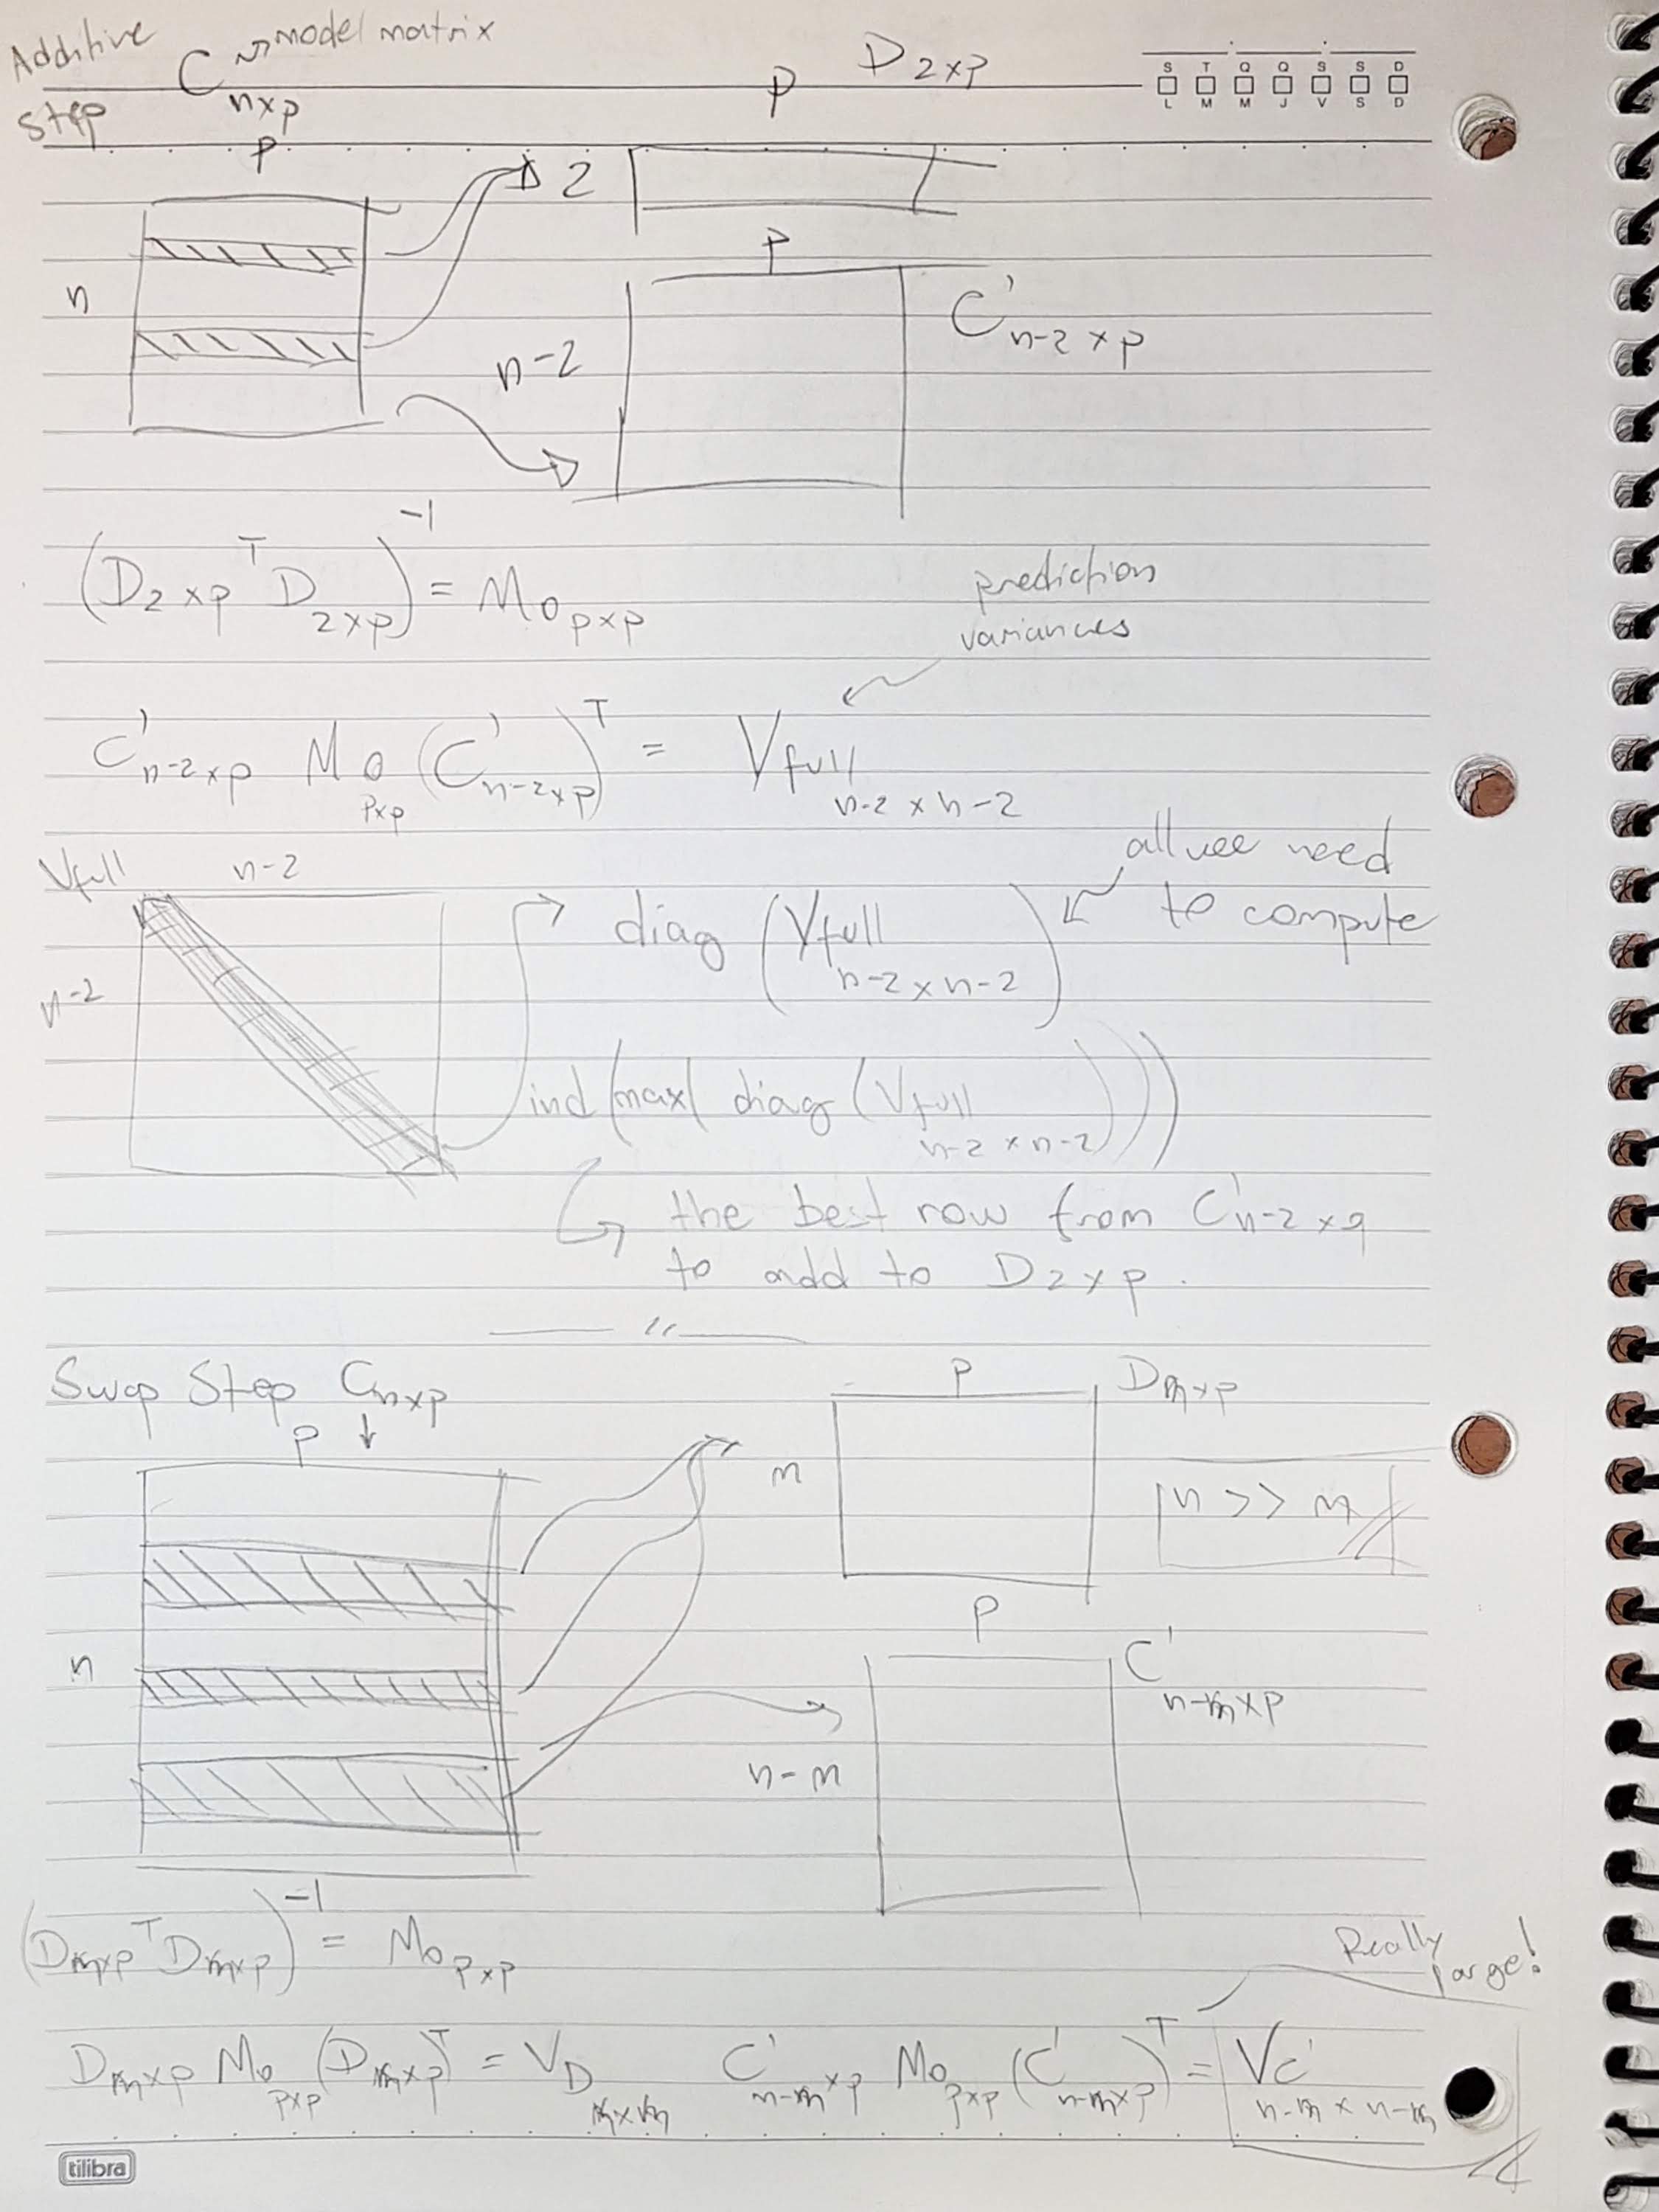 Additive step
C n×p model matrix
D 2×p
S T Q Q S S D
L M M J V S D
p
p
2
n
p
n-2
C' n-2×p
(D 2×p ᵀ D 2×p)⁻¹ = M₀ p×p
prediction
variances
C' n-2×p M₀ p×p (C' n-2×p)ᵀ = V full n-2×n-2
V full
n-2
n-2
diag (V full n-2×n-2)
all we need
to compute
ind(max(diag(V full n-2×n-2)))
the best row from C' n-2×q
to add to D 2×p.
"
Swap Step C n×p
p
p
D m×p
m
n >> m
p
n
C' n-m×p
n-m
(D m×p ᵀ D m×p)⁻¹ = M₀ p×p
Really
large!
D m×p M₀ p×p (D m×p)ᵀ = V D m×m
C' n-m×p M₀ p×p (C' n-m×p)ᵀ = V C' n-m×n-m
tilibra